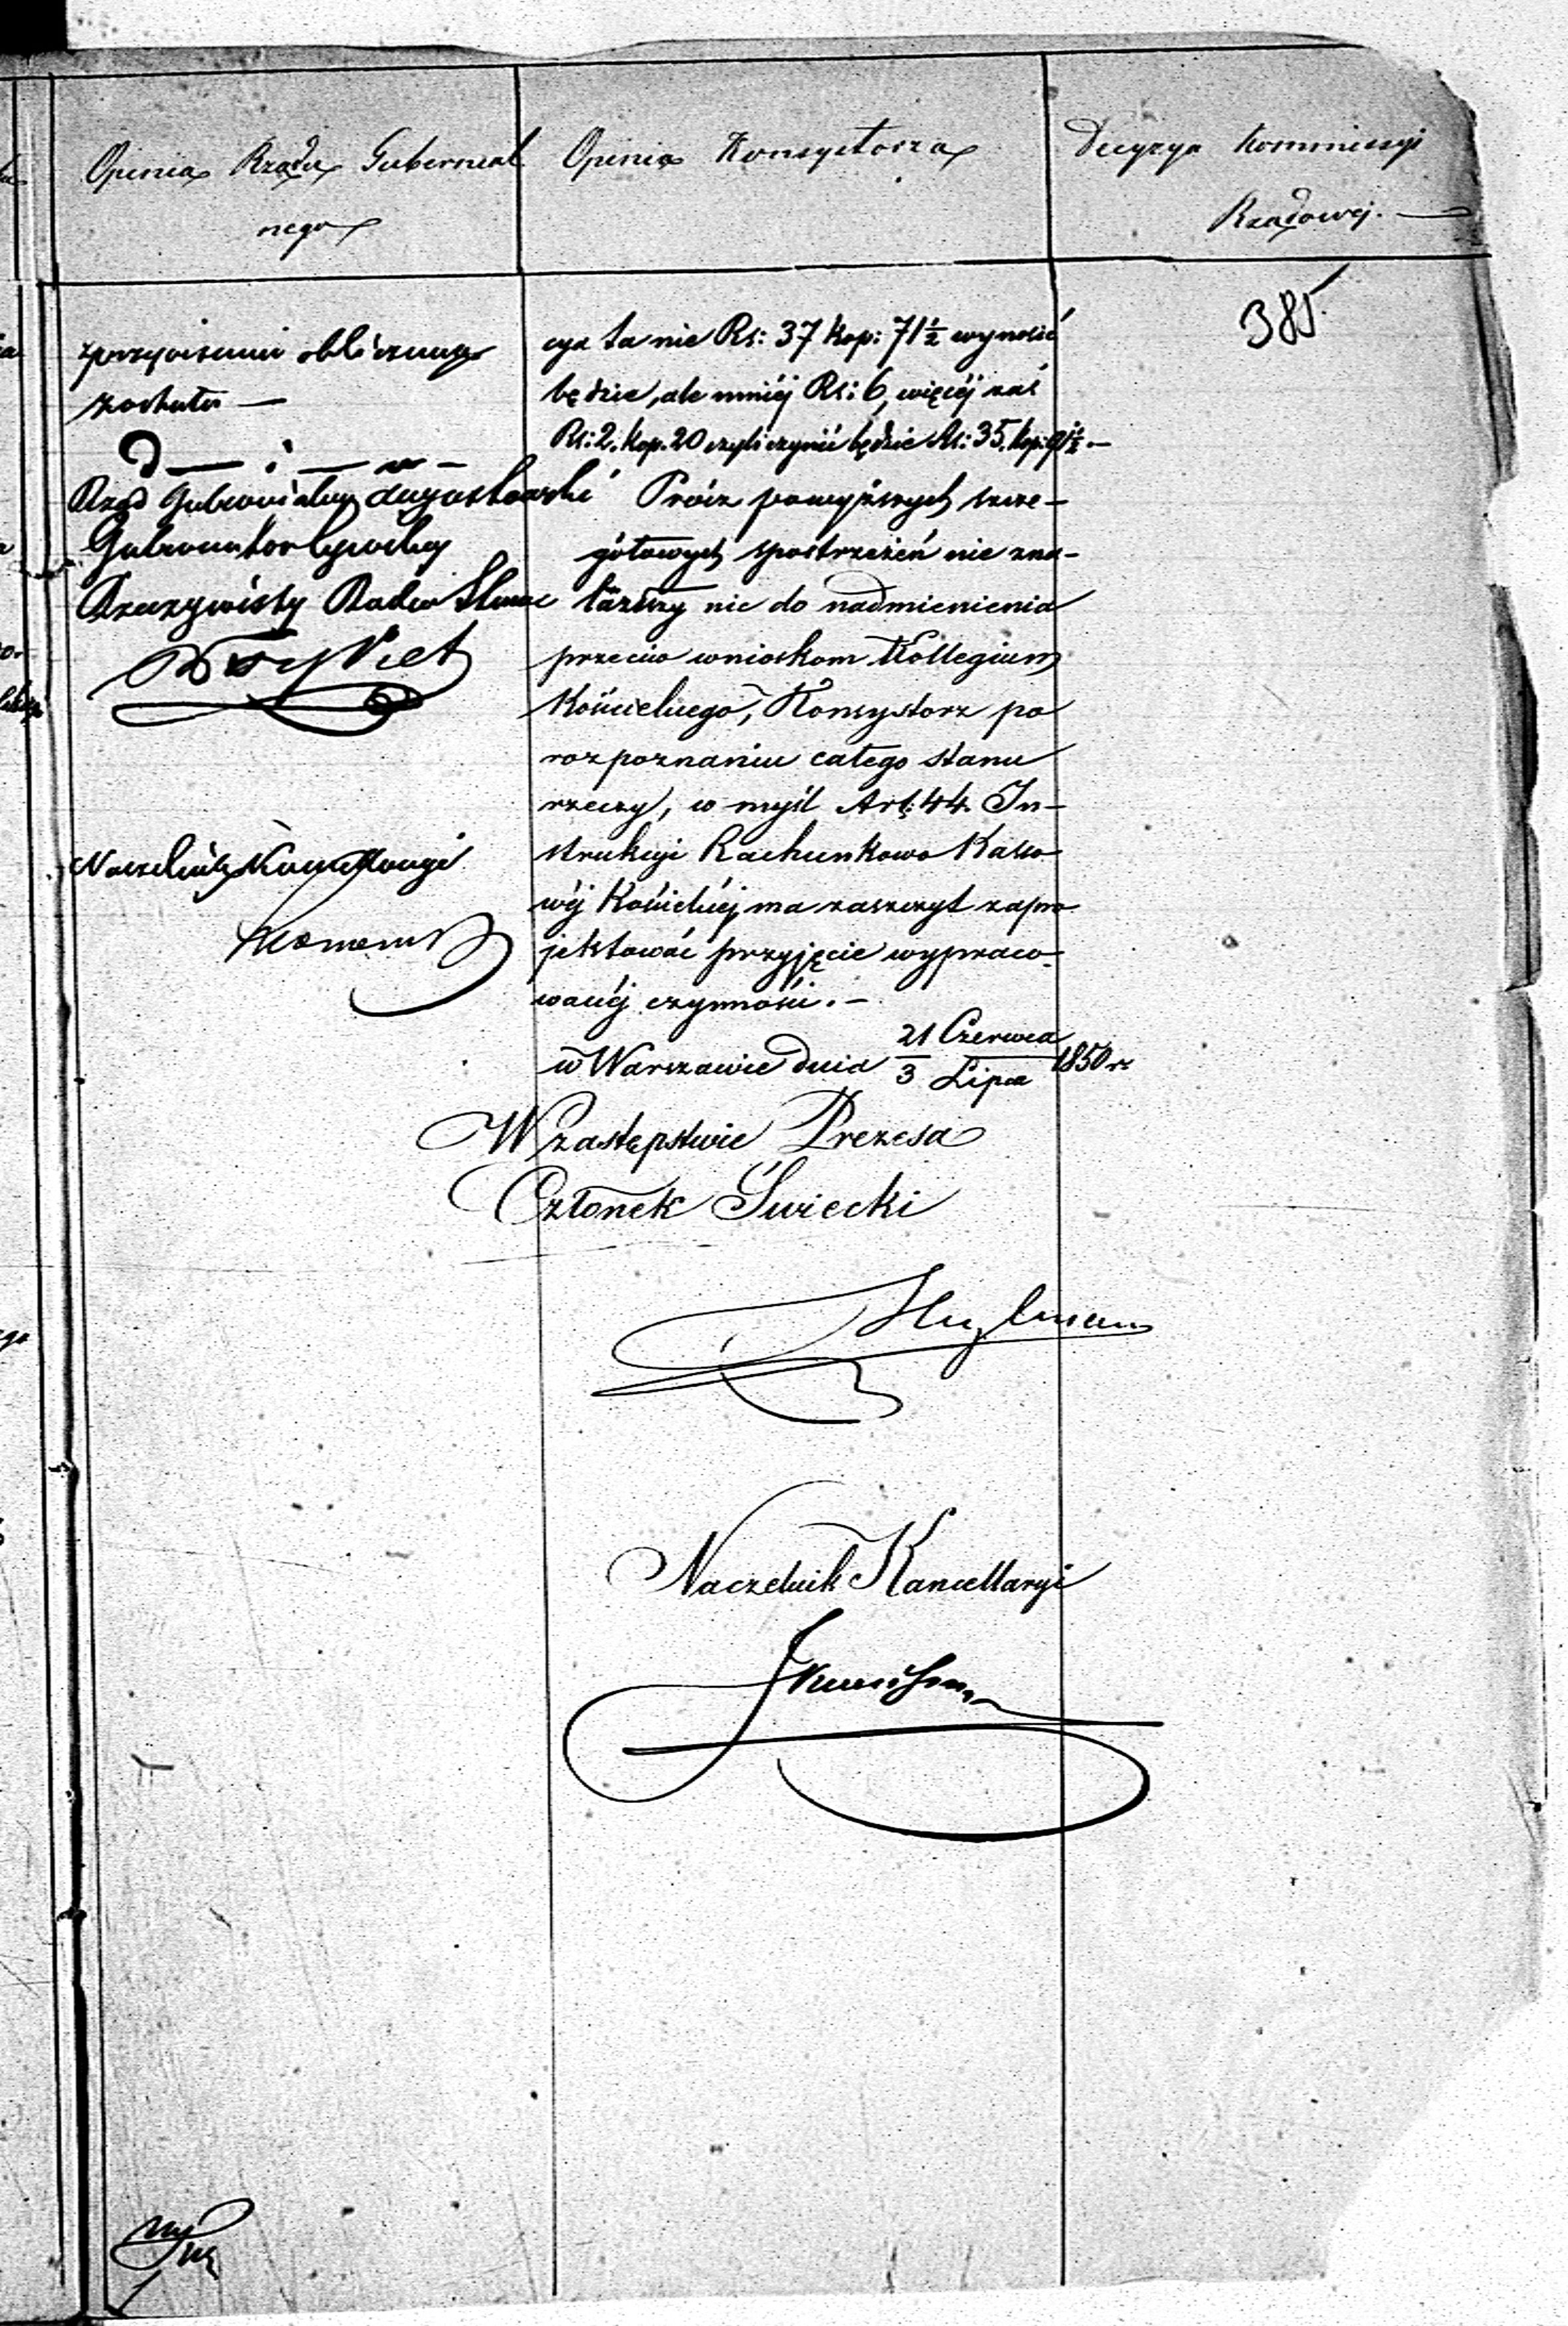 Opinia Rządu Gubernial
nego
Opinia Konsystorza
Decyzya Kommissyi
Rządowej. —
385
obliczenie
została —
Rząd Gubernialny Augustowski
Gubernator Cywilny
Rzeczywisty Radca Stanu
Naczelnik Kancellaryi
cya ta nie Rs: 37 kop: 71½ wynosić
będzie, ale mniéj Rs: 6, więcéj zaś
Rs: 2. kop. 20 czyli czynić będzie Rs: 35. kop: 91½ —
Prócz powyższych szcze-
gółowych spostrzeżeń nie zna-
lazłszy nic do nadmienienia
przeciw wnioskom Kollegium
Kościelnego, Konsystorz po
rozpoznaniu całego stanu
rzeczy, w myśl Art: 44 In-
strukcyi Rachunkowo Kasso
wéj Kościelnéj ma zaszczyt zapro
jektować przyjęcie wypraco-
wanéj czynności. —
w Warszawie dnia 21 Czerwca / 3 Lipca 1850 r.
W Zastępstwie Prezesa
Członek Świecki
Naczelnik Kancellaryi